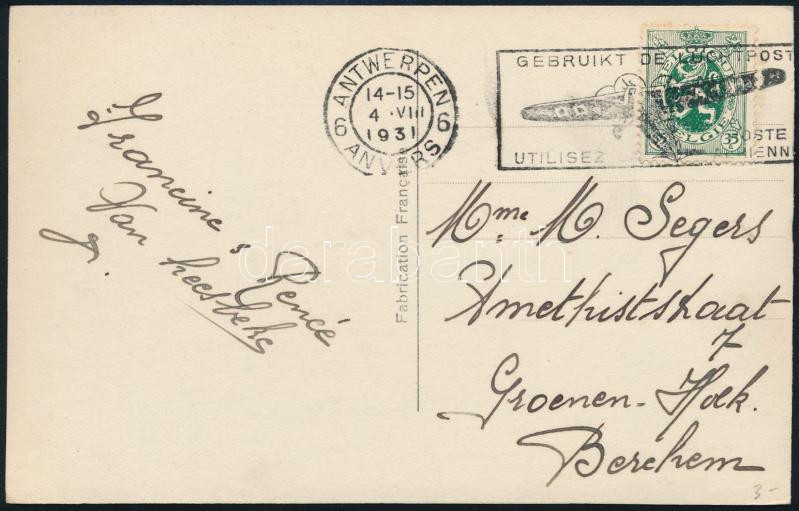 ANTWERPEN
14-15
4 VIII
1931
6 6
ANVERS
GEBRUIKT DE LUCHTPOST
UTILISEZ POSTE
BELGIE
35
Francine & Renée
Van
g.
Fabrication Française
Mme M. Segers
Amethiststraat
7
Groenen-Hoek.
Berchem
3-
darabanth